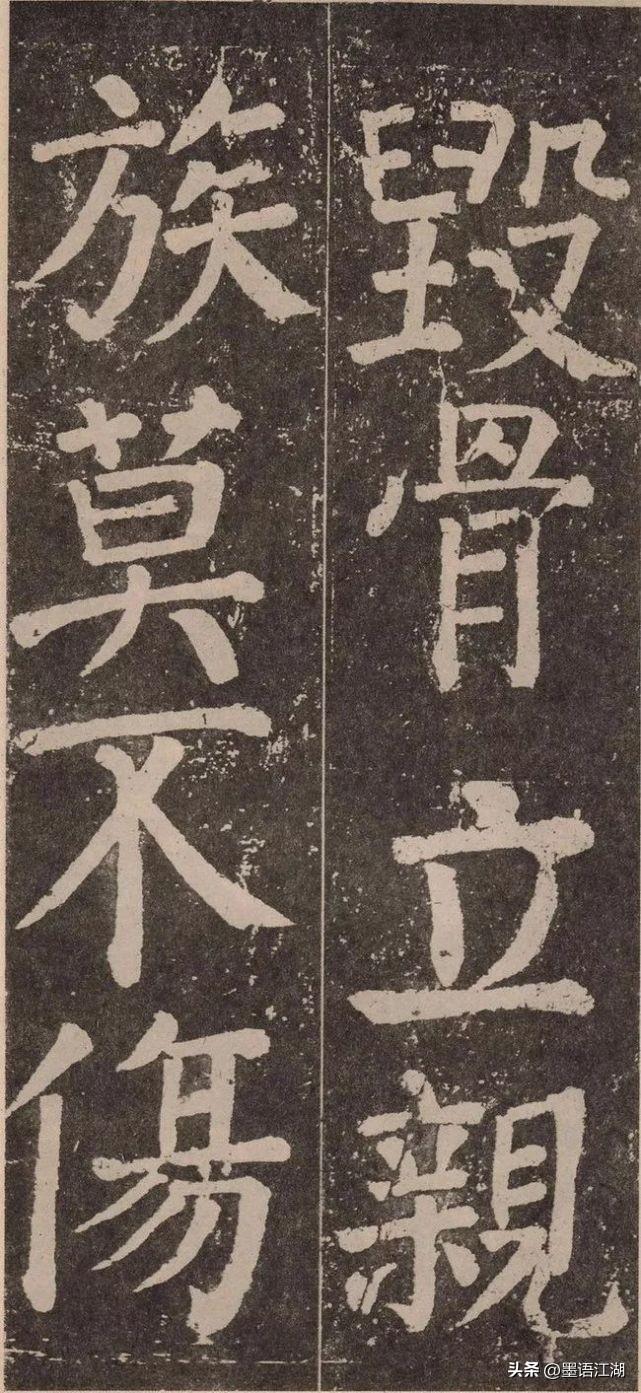 毀骨立親
族莫不傷
头条 @墨语江湖